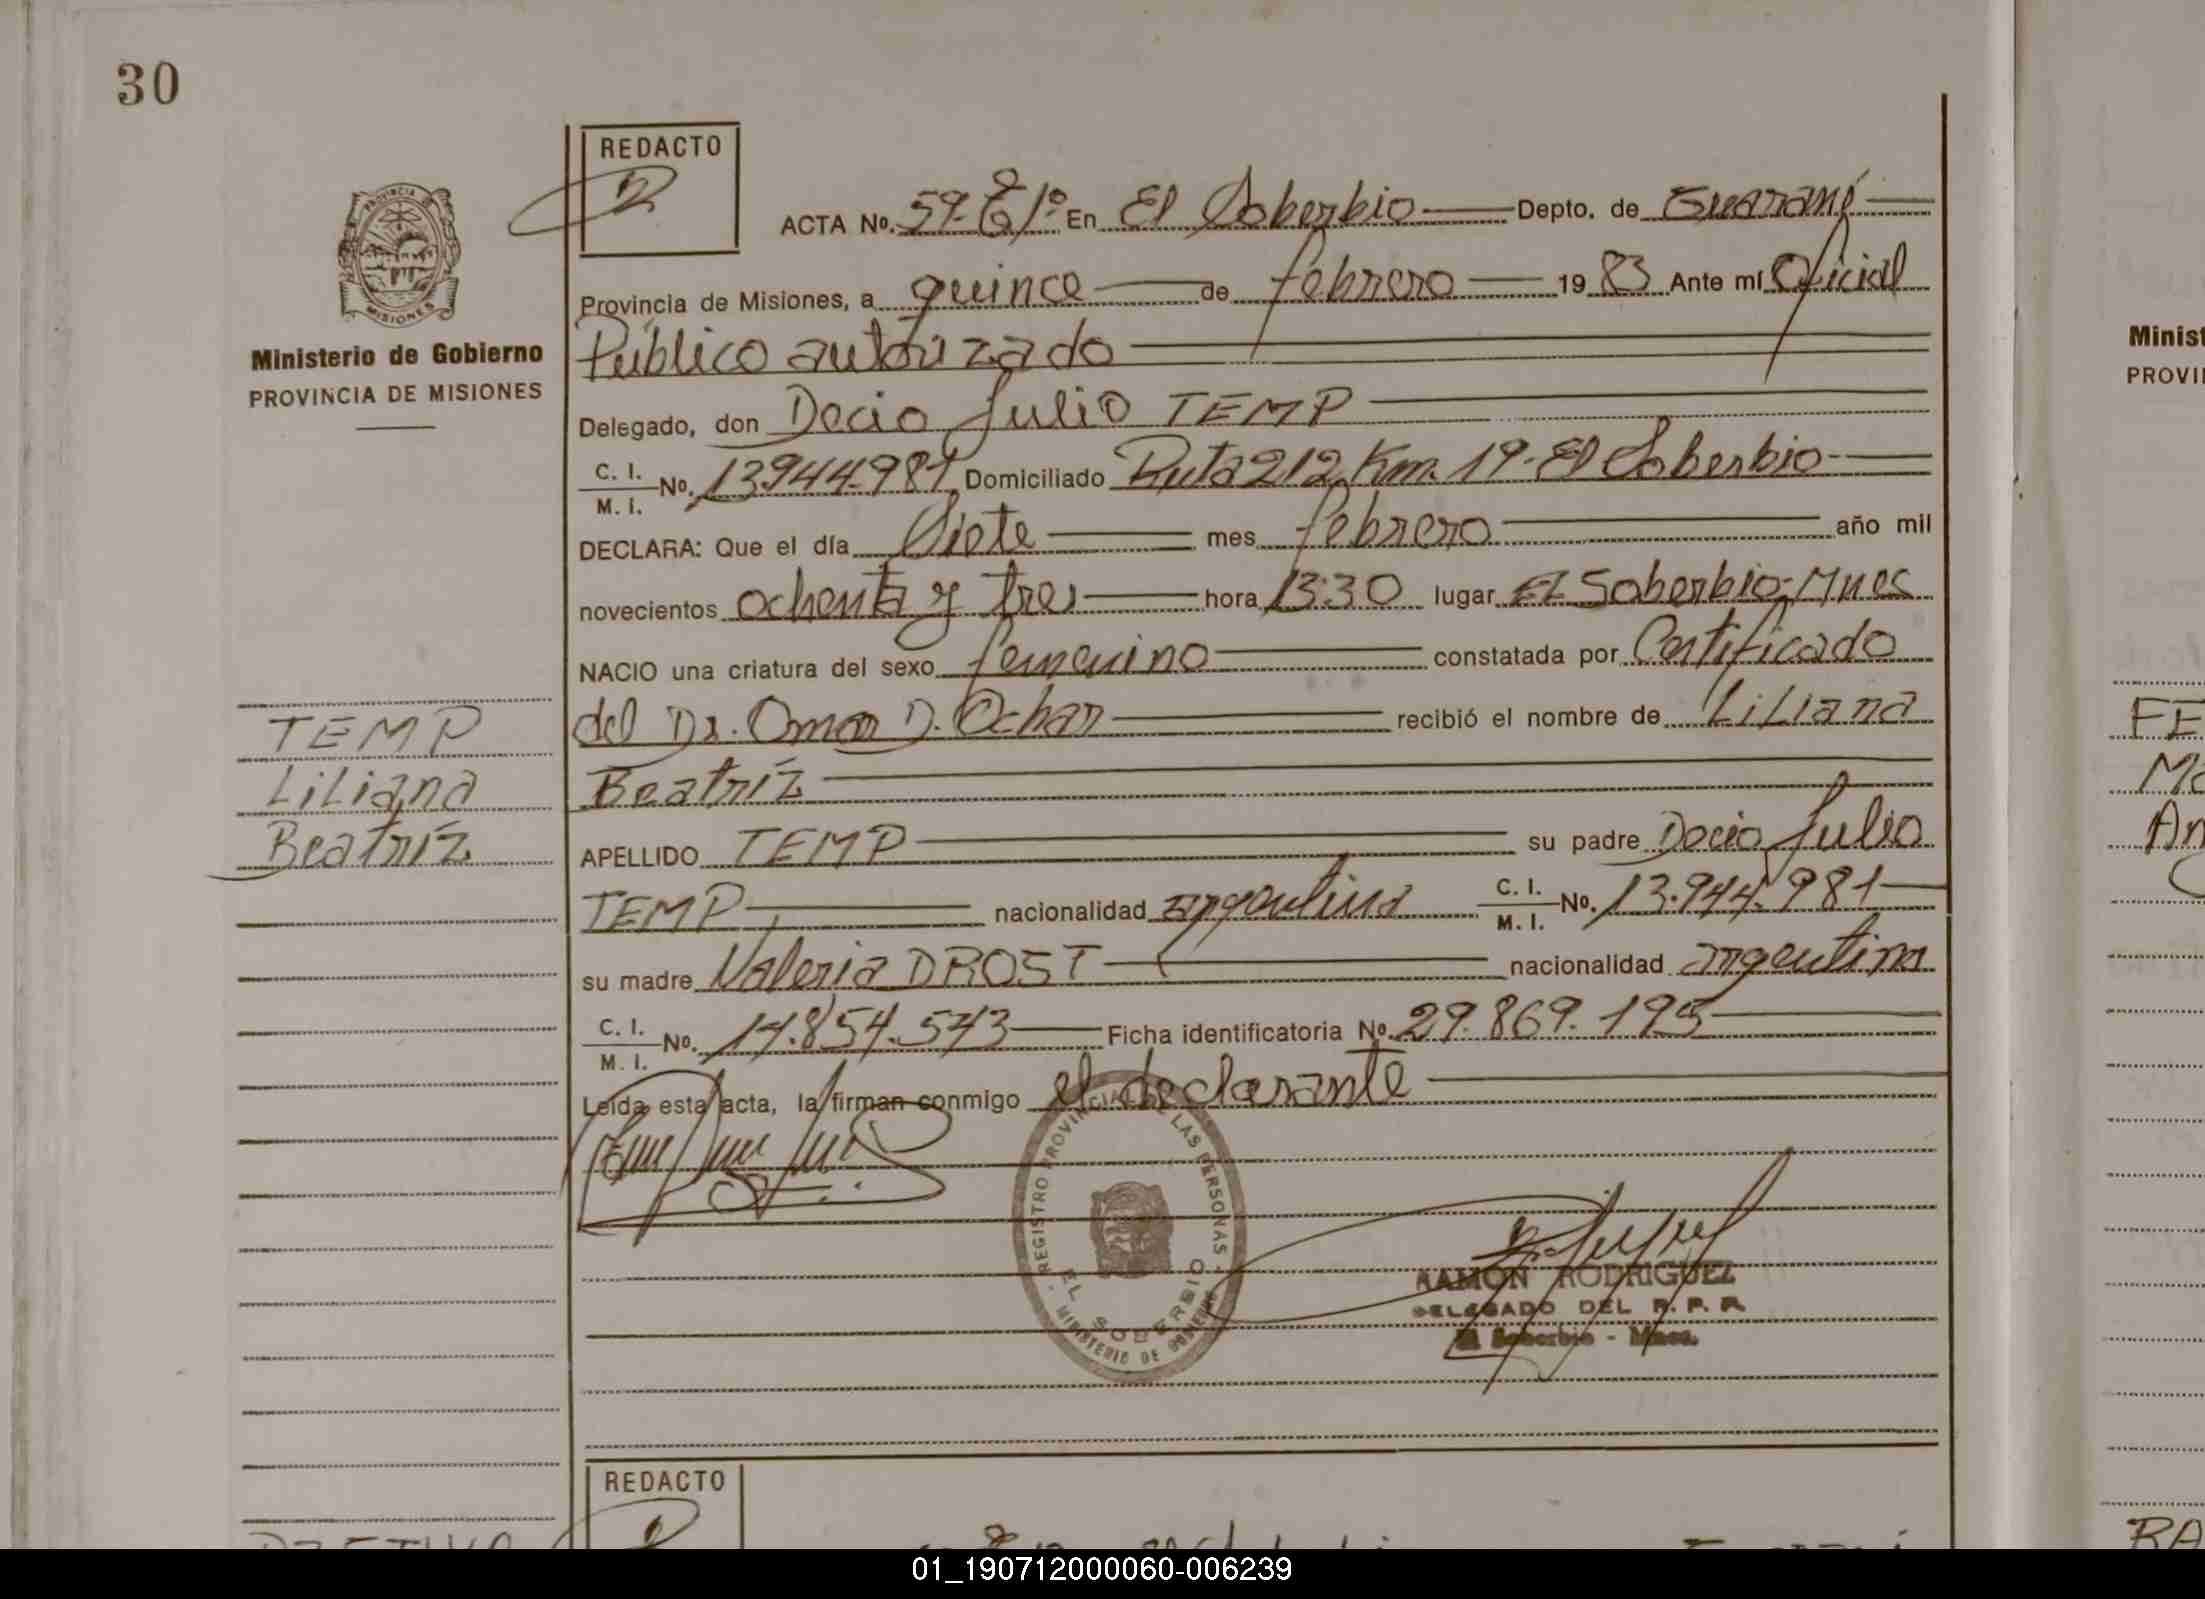 30
REDACTO
ACTA No. 59. Tº 1º En El Soberbio Depto. de Guaraní
Provincia de Misiones, a quince de febrero 19 83 Ante mí Oficial
Público autorizado
Delegado, don Decio Julio TEMP
C. I. / M. I. No. 13.944.981 Domiciliado Ruta 212 Km. 19 - El Soberbio
DECLARA: Que el día Siete mes febrero año mil
novecientos ochenta y tres hora 13:30 lugar El Soberbio - Mnes
NACIO una criatura del sexo femenino constatada por Certificado
del Dr. Omar D. Ochar recibió el nombre de Liliana
Beatríz
APELLIDO TEMP su padre Decio Julio
TEMP nacionalidad argentina C. I. / M. I. No. 13.944.981
su madre Valeria DROST nacionalidad argentina
C. I. / M. I. No. 14.854.543 Ficha identificatoria No. 29.869.195
Leída esta acta, la firman conmigo el declarante
REGISTRO PROVINCIAL DE LAS PERSONAS
EL SOBERBIO
MINISTERIO DE GOBIERNO
RAMON RODRIGUEZ
DELEGADO DEL R. P. P.
El Soberbio - Mnes.
PROVINCIA
MISIONES
Ministerio de Gobierno
PROVINCIA DE MISIONES
TEMP
Liliana
Beatríz
REDACTO
Minist
PROVI
FE
An
BA
01_190712000060-006239